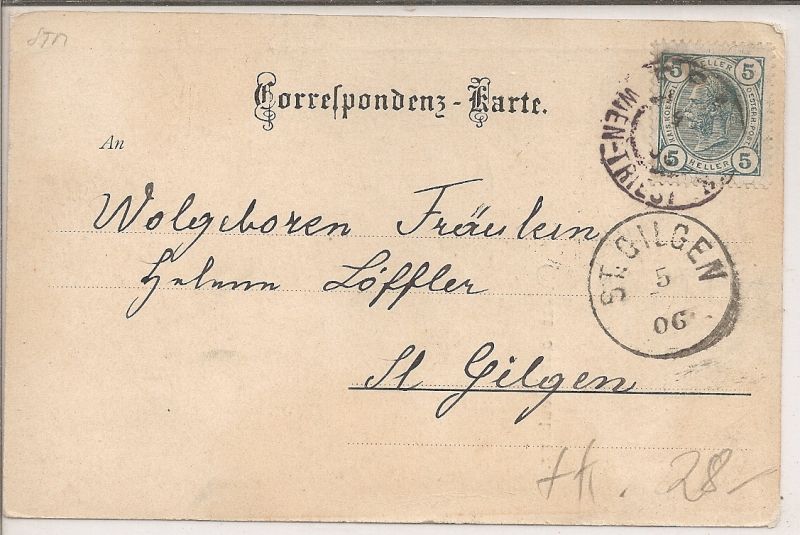 STM
Correſpondenz-Karte.
An
5 HELLER 5
KAIS. KÖNIGL. OESTERR. POST
5 HELLER 5
WIEN-TRIEST
Wolgeboren Fräulein
Helene Löffler
ST. GILGEN
5
06
St Gilgen
28-